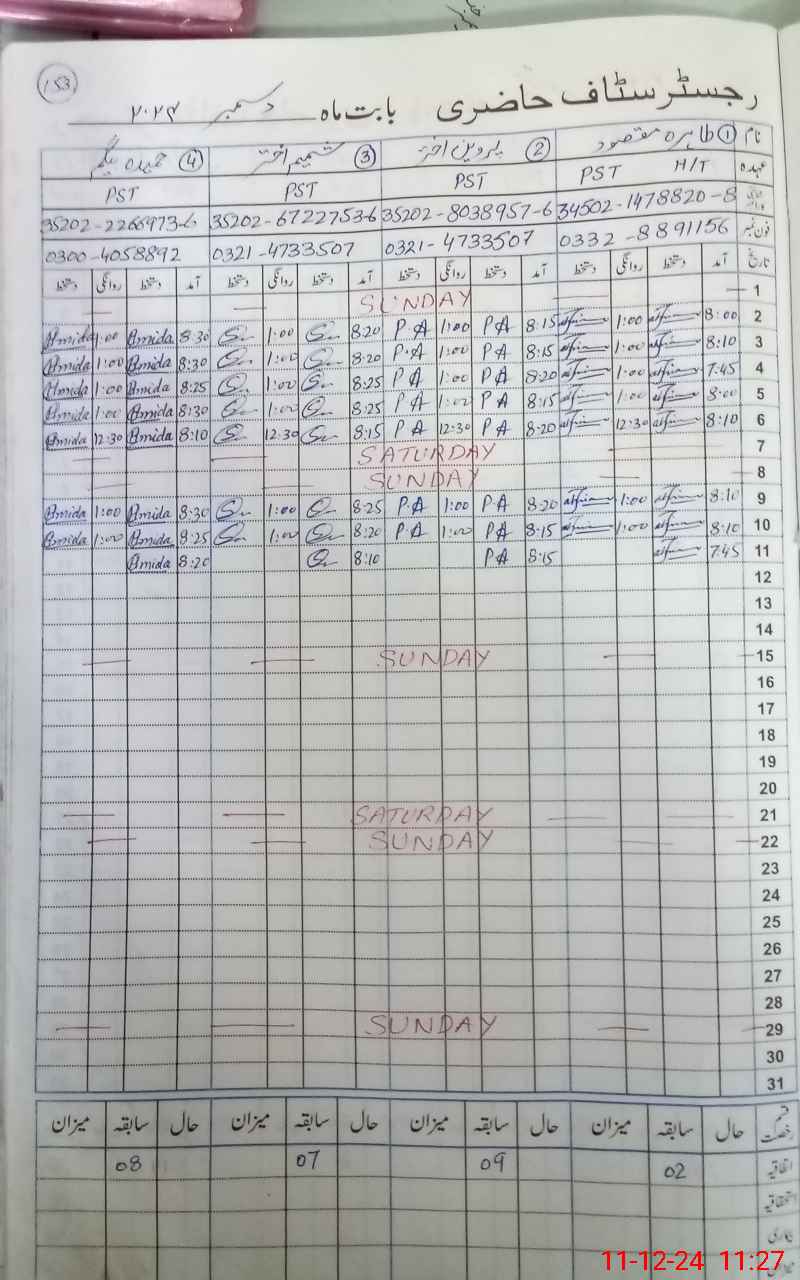 153
رجسٹر سٹاف حاضری بابت ماہ دسمبر ۲۰۲۴
نام ① طاہرہ مقصود ② پروین اختر ③ شمیم اختر ④ حمیدہ بیگم
عہدہ PST H/T PST PST PST
34502-1478820-8 35202-8038957-6 35202-6722753-6 35202-2266973-6
فون نمبر 0332-8891156 0321-4733507 0321-4733507 0300-4058892
تاریخ آمد دستخط روانگی دستخط آمد دستخط روانگی دستخط آمد دستخط روانگی دستخط آمد دستخط روانگی دستخط
1 SUNDAY
2 8:00 1:00 8:15 PA 1:00 PA 8:20 1:00 8:30 Hmida 1:00 Hmida
3 8:10 1:00 8:15 PA 1:00 P.A 8:20 1:00 8:30 Hmida 1:00 Hmida
4 7:45 1:00 8:20 PA 1:00 PA 8:25 1:00 8:25 Hmida 1:00 Hmida
5 8:00 1:00 8:15 PA 1:00 PA 8:25 1:00 8:30 Hmida 1:00 Hmida
6 8:10 12:30 8:20 PA 12:30 PA 8:15 12:30 8:10 Hmida 12:30 Hmida
7 SATURDAY
8 SUNDAY
9 8:10 1:00 8:20 P.A 1:00 P.A 8:25 1:00 8:30 Hmida 1:00 Hmida
10 8:10 1:00 8:15 PA 1:00 P.A 8:20 1:00 8:25 Hmida 1:00 Hmida
11 7:45 8:15 PA 8:10 8:20 Hmida
12
13
14
15 SUNDAY
16
17
18
19
20
21 SATURDAY
22 SUNDAY
23
24
25
26
27
28
29 SUNDAY
30
31
قسم رخصت حال سابقہ میزان حال سابقہ میزان حال سابقہ میزان حال سابقہ میزان
اتفاقیہ 02 09 07 08
استحقاقیہ
بیماری
11-12-24 11:27